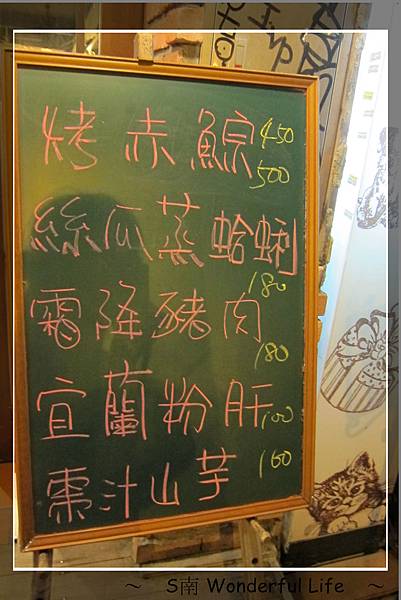 烤赤鯮 450
500
絲瓜蒸蛤蜊
180
霜降豬肉
180
宜蘭粉肝 100
棗汁山芋 160
～ S南 Wonderful Life ～